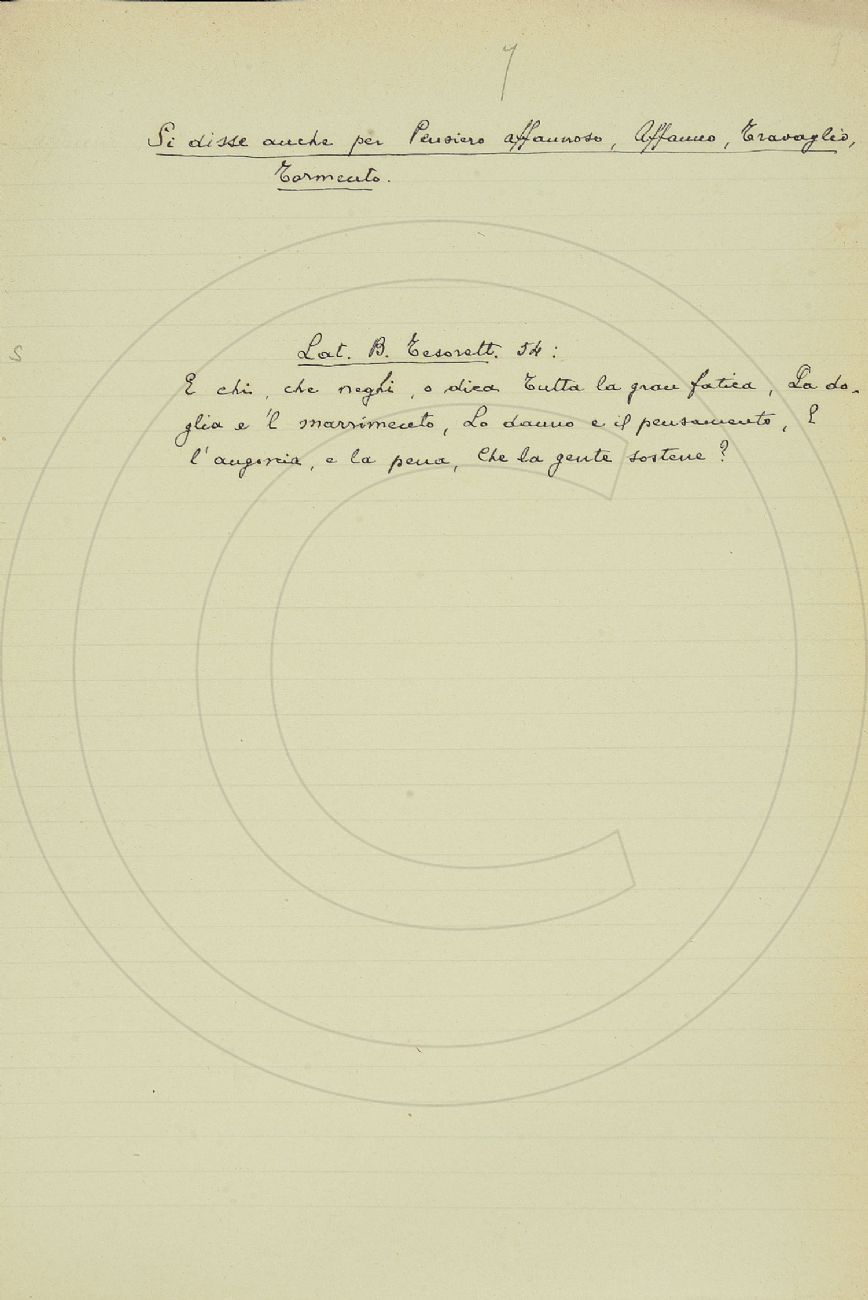 7
Si disse anche per Pensiero affannoso, Affanno, Travaglio,
Tormento.
S
Lat. B. Tesorett. 54:
E chi, che neghi, o dica Tutta la gran fatica, La do-
glia e 'l marrimento, Lo danno e il pensamento, E
l'angoscia, e la pena, Che la gente sostene?